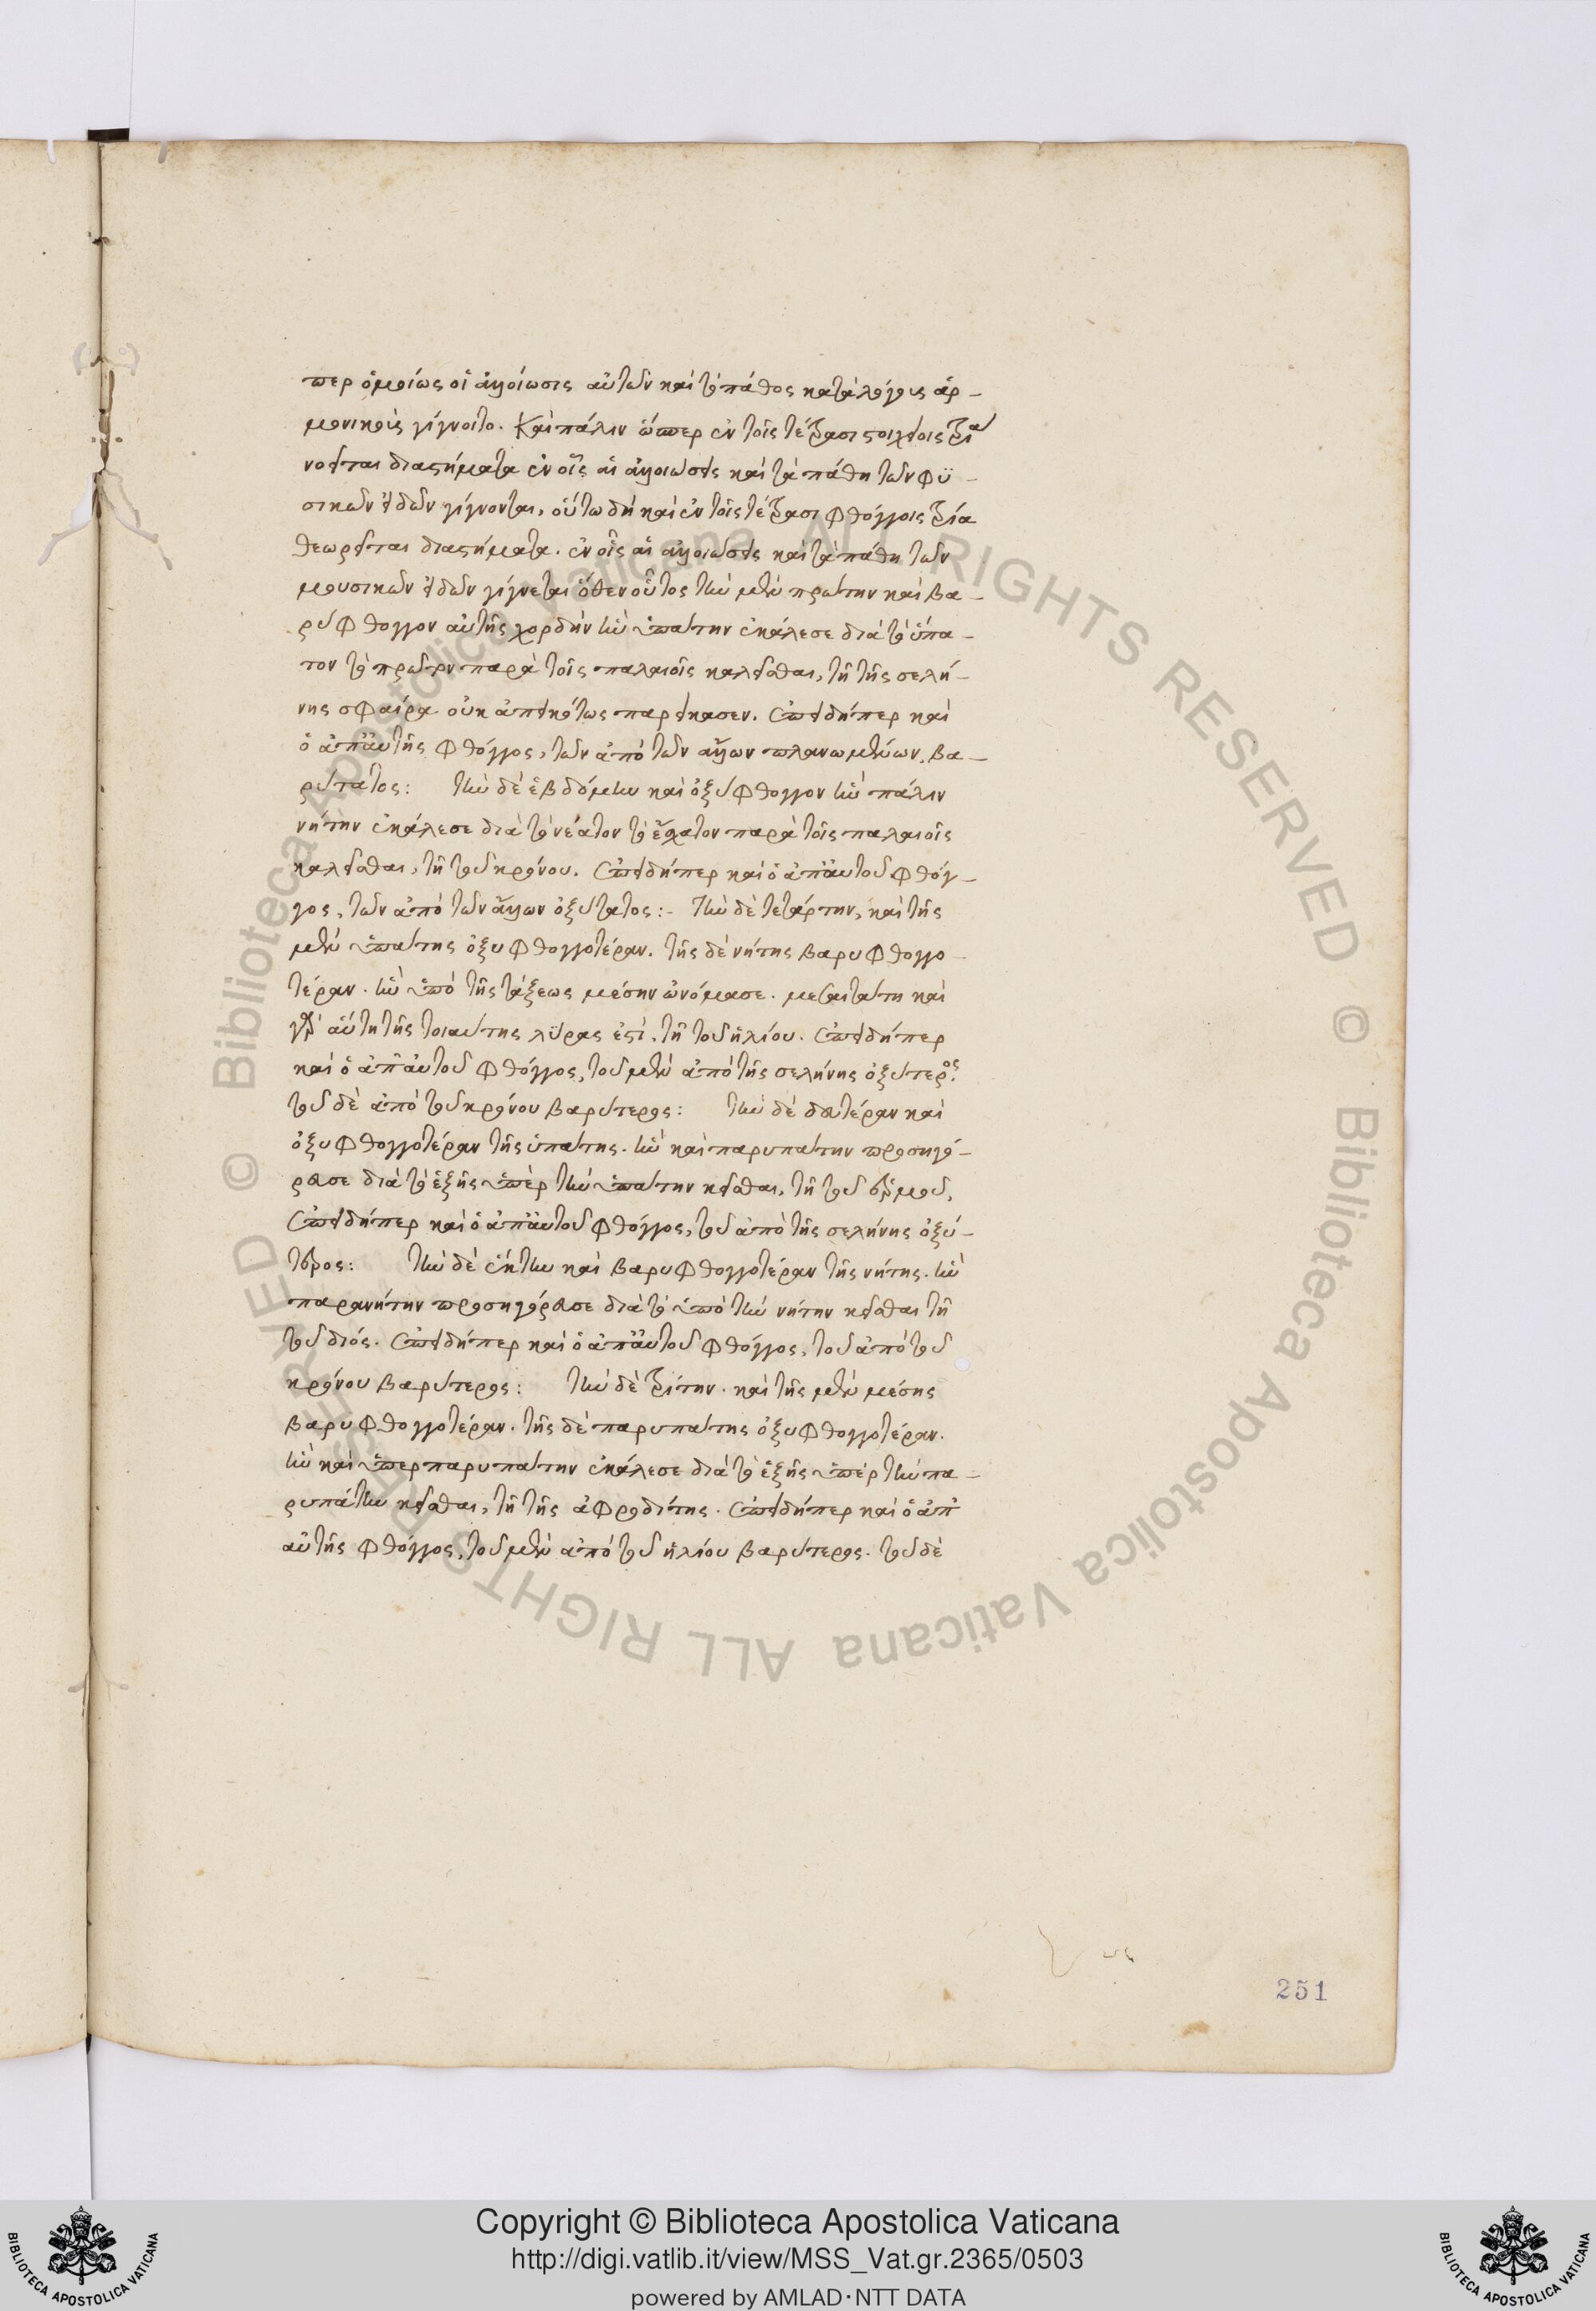 περ ὁμοίως οἱ ἀλλοίωσις αὐτῶν καὶ τὸ πάθος κατὰ λόγους ἁρ-
μονικοὺς γίγνοιτο. Καὶ πάλιν ὥσπερ ἐν τοῖς τέτρασι στοιχείοις τρία
νοεῖται διαστήματα ἐν οἷς αἱ ἀλλοιώσεις καὶ τὰ πάθη τῶν φϋ-
σικῶν εἰδῶν γίγνονται, οὕτω δὴ καὶ ἐν τοῖς τέτρασι φθόγγοις τρία
θεωρεῖται διαστήματα. ἐν οἷς αἱ ἀλλοιώσεις καὶ τὰ πάθη τῶν
μουσικῶν εἰδῶν γίγνεται ὅθεν οὗτος τὴν μὲν πρώτην καὶ βα-
ρύφθογγον αὐτῆς χορδὴν ἣν ὑπάτην ἐκάλεσε διὰ τὸ ὕπα-
τον τὸ πρῶτον παρὰ τοῖς παλαιοῖς καλεῖσθαι, τῇ τῆς σελή-
νης σφαίρα οὐκ ἀπεικότως παρείκασεν. ἐπειδήπερ καὶ
ὁ ἀπ' αὐτῆς φθόγγος, τῶν ἀπὸ τῶν ἄλλων πλανωμένων, βα-
ρύτατος: τὴν δὲ ἑβδόμην καὶ ὀξύφθογγον ἣν πάλιν
νήτην ἐκάλεσε διὰ τὸ νέατον τὸ ἔσχατον παρὰ τοῖς παλαιοῖς
καλεῖσθαι, τῇ τοῦ κρόνου. ἐπειδήπερ καὶ ὁ ἀπ' αὐτοῦ φθόγ-
γος, τῶν ἀπὸ τῶν ἄλλων ὀξύτατος:- τὴν δὲ τετάρτην, καὶ τῆς
μὲν ὑπάτης ὀξυφθογγοτέραν. τῆς δὲ νήτης βαρυφθογγο-
τέραν. ἣν ὑπὸ τῆς τάξεως μέσην ὠνόμασε. μεσαιτάτη καὶ
γὰρ αὕτη τῆς τοιαύτης λύρας ἐστὶ, τῇ τοῦ ἡλίου. ἐπειδήπερ
καὶ ὁ ἀπ' αὐτοῦ φθόγγος, τοῦ μὲν ἀπὸ τῆς σελήνης ὀξύτερος.
τοῦ δὲ ἀπὸ τοῦ κρόνου βαρύτερος: τὴν δὲ δευτέραν καὶ
ὀξυφθογγοτέραν τῆς ὑπάτης. ἣν καὶ παρυπάτην προσηγό-
ρευσε διὰ τὸ ἑξῆς ὑπὲρ τὴν ὑπάτην κεῖσθαι, τῇ τοῦ ἑρμοῦ,
ἐπειδήπερ καὶ ὁ ἀπ' αὐτοῦ φθόγγος, τοῦ ἀπὸ τῆς σελήνης ὀξύ-
τερος: τὴν δὲ ἕκτην καὶ βαρυφθογγοτέραν τῆς νήτης. ἣν
παρανήτην προσηγόρευσε διὰ τὸ ὑπὸ τὴν νήτην κεῖσθαι τῇ
τοῦ διός. ἐπειδήπερ καὶ ὁ ἀπ' αὐτοῦ φθόγγος, τοῦ ἀπὸ τοῦ
κρόνου βαρύτερος: τὴν δὲ τρίτην. καὶ τῆς μὲν μέσης
βαρυφθογγοτέραν. τῆς δὲ παρυπάτης ὀξυφθογγοτέραν.
ἣν καὶ ὑπερπαρυπάτην ἐκάλεσε διὰ τὸ ἑξῆς ὑπὲρ τὴν πα-
ρυπάτην κεῖσθαι, τῇ τῆς ἀφροδίτης. ἐπειδήπερ καὶ ὁ ἀπ'
αὐτῆς φθόγγος, τοῦ μὲν ἀπὸ τοῦ ἡλίου βαρύτερος. τοῦ δὲ
251
© Biblioteca Apostolica Vaticana ALL RIGHTS RESERVED © Biblioteca Apostolica Vaticana ALL RIGHTS RESERVED
Copyright © Biblioteca Apostolica Vaticana
http://digi.vatlib.it/view/MSS_Vat.gr.2365/0503
powered by AMLAD·NTT DATA
BIBLIOTECA APOSTOLICA VATICANA
BIBLIOTECA APOSTOLICA VATICANA